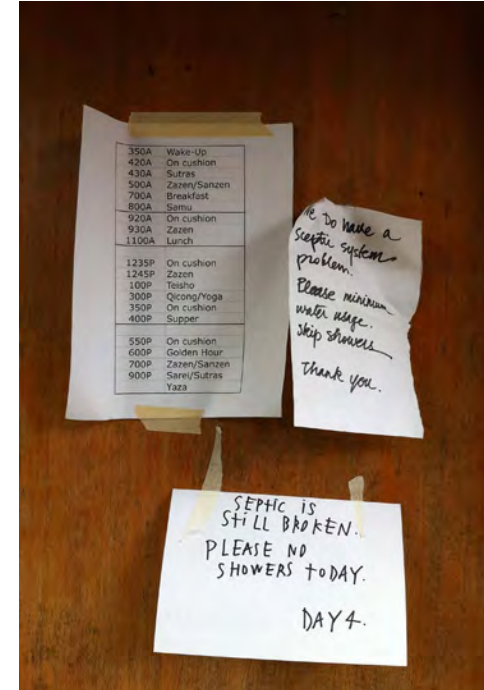 350A Wake-Up
420A On cushion
430A Sutras
500A Zazen/Sanzen
700A Breakfast
800A Samu
920A On cushion
930A Zazen
1100A Lunch
1235P On cushion
1245P Zazen
100P Teisho
300P Qicong/Yoga
350P On cushion
400P Supper
550P On cushion
600P Golden Hour
700P Zazen/Sanzen
900P Sarei/Sutras
Yaza
We Do have a
sceptic system
problem.
Please minimum
water usage.
Skip showers
Thank you.
SEPTIC IS
STILL BROKEN.
PLEASE NO
SHOWERS TODAY.
DAY 4.